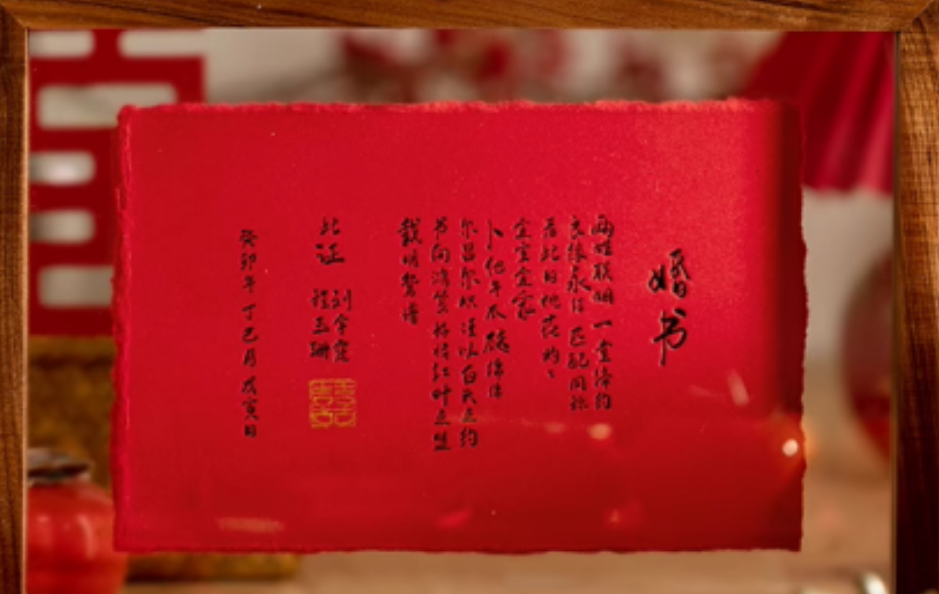 婚书
两姓联姻 一堂缔约
良缘永结 匹配同称
看此日桃花灼灼
宜室宜家
卜他年瓜瓞绵绵
尔昌尔炽 谨以白头之约
书向鸿笺 好将红叶之盟
载明鸳谱
此证
刘
程玉珊
癸卯年丁巳月戊寅日